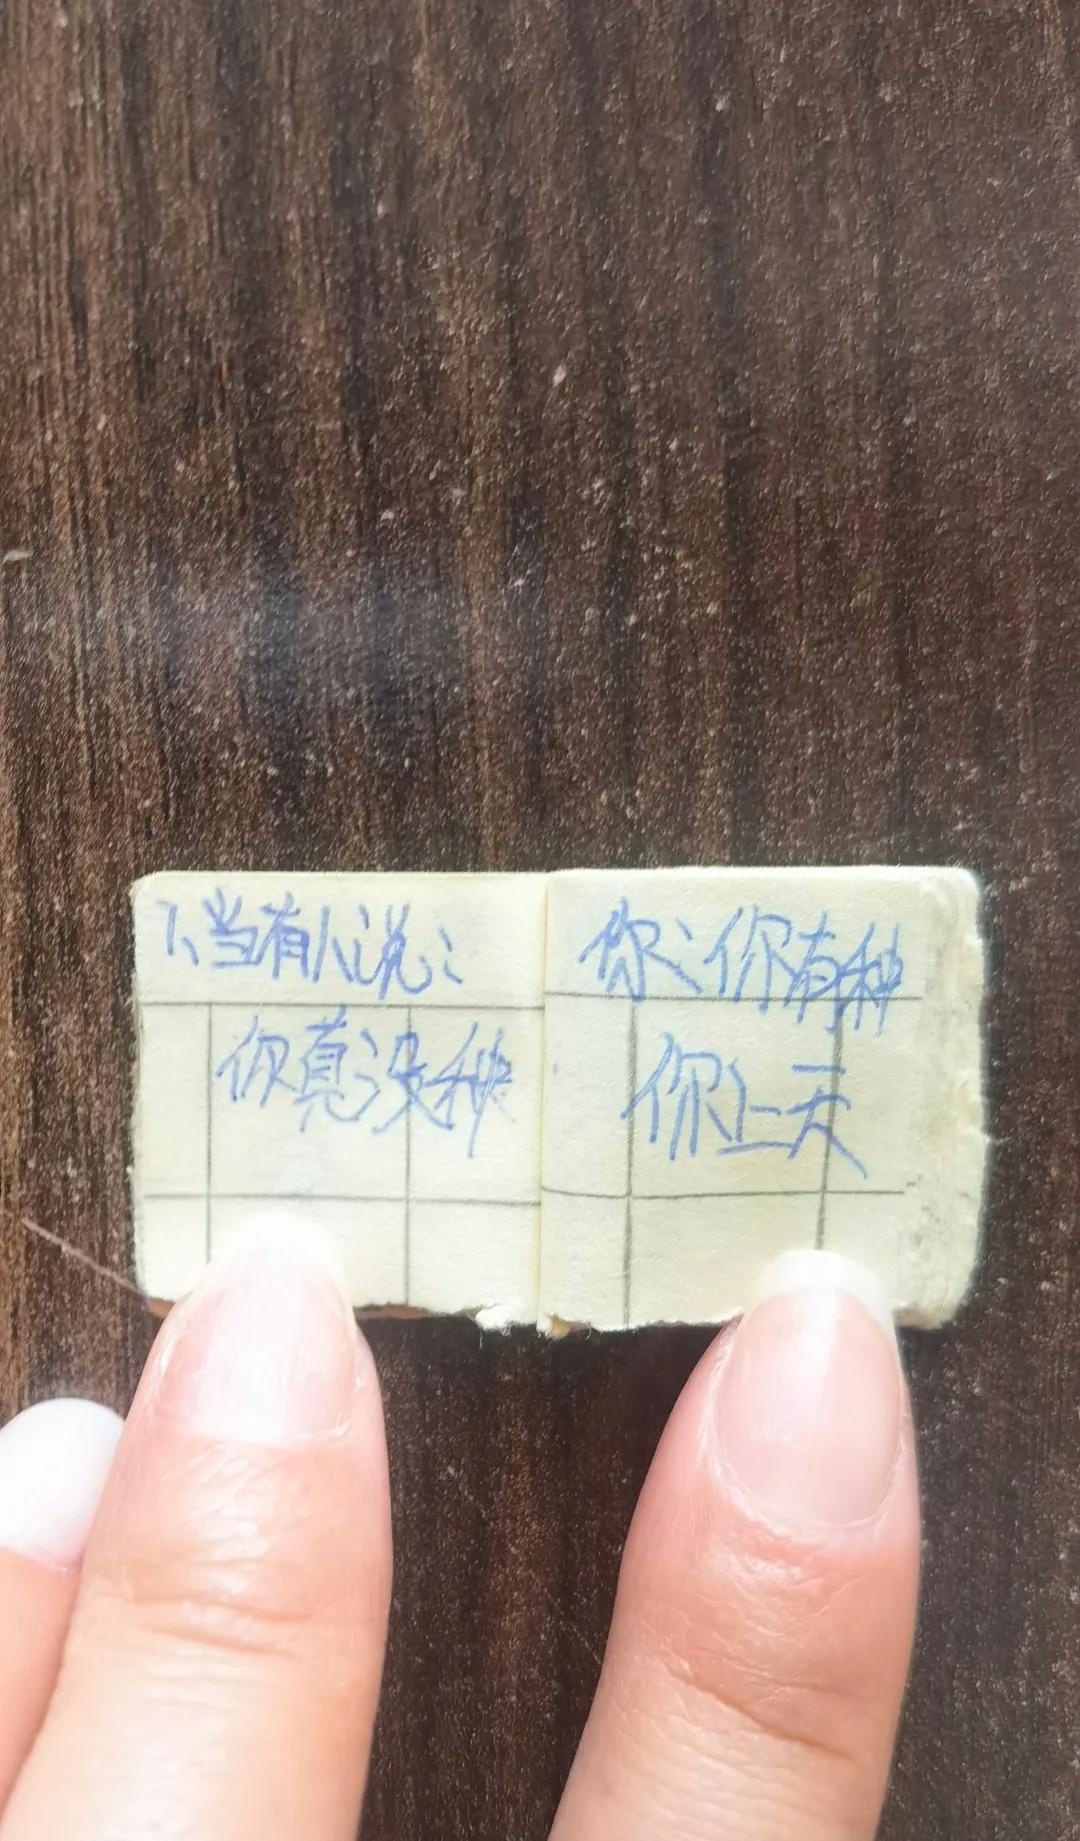 1、当有人说：
你真没种
你：你有种
你上天